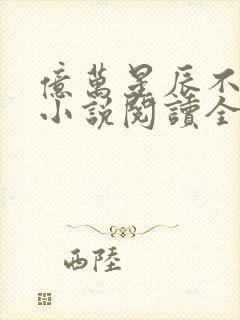 億萬星辰不
小說閱讀全
西陸